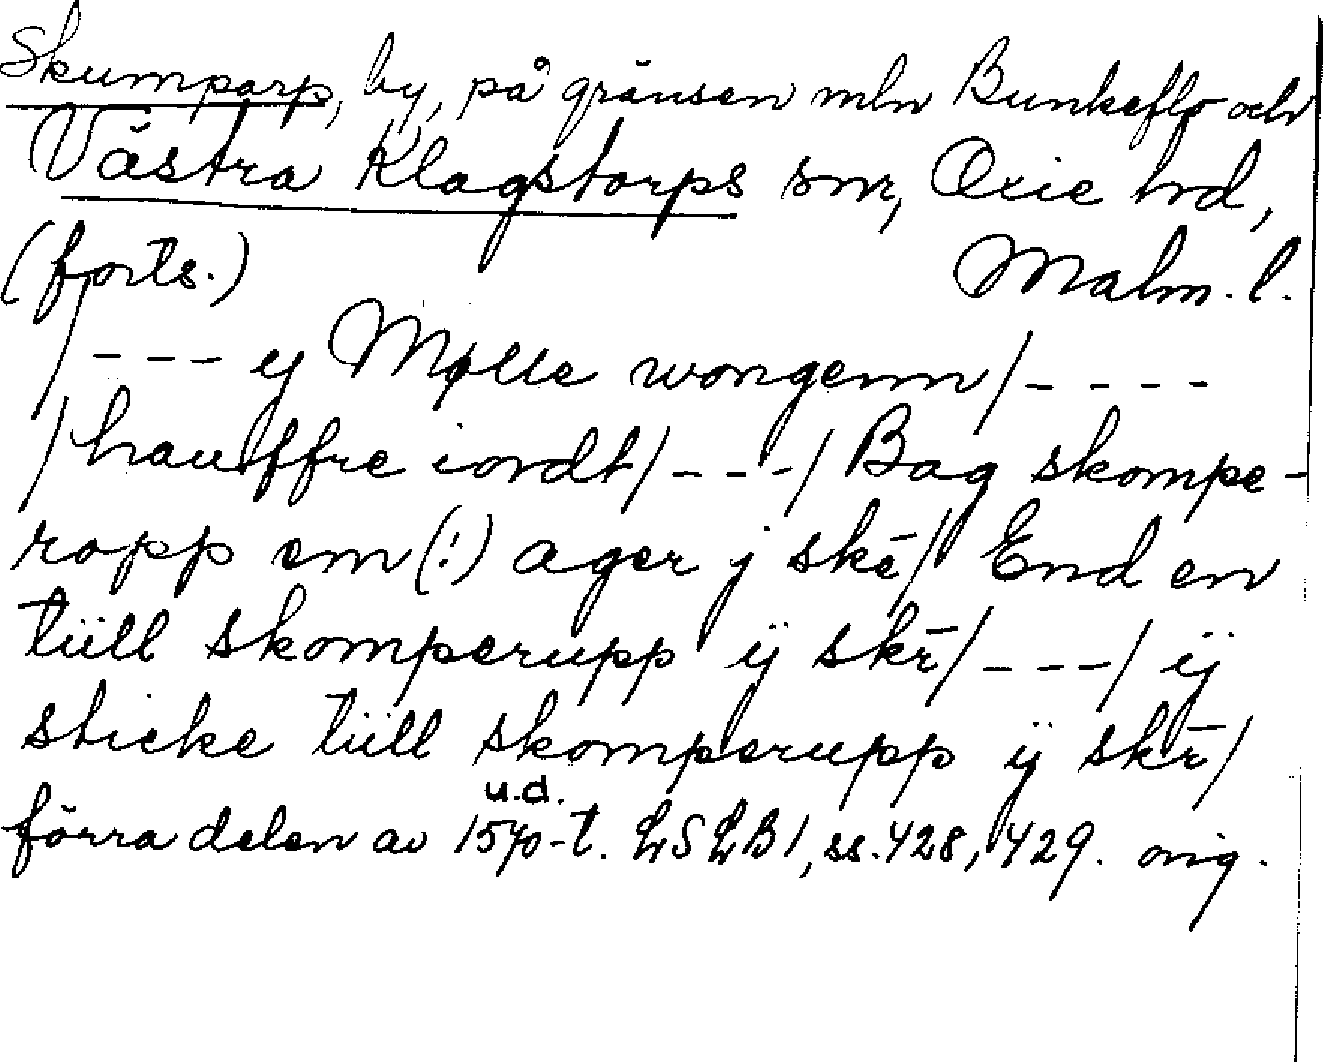 Skumparp, by, på gränsen mln Bunkeflo och
Västra Klagstorps snr, Oxie hd,
(forts.) Malm. l.
/ - - - ej Mølle wongenn / - - - -
/ hauffre iordt / - - - / Bag skompe-
ropp em (!) ager j skē / End en
tüll skomperupp ÿ skr̄ / - - - / ÿ
sticke tüll skomperupp ÿ skr̄ /
u.d.
förra delen av 1570-t. LSLB 1, ss. 428, 429. orig.